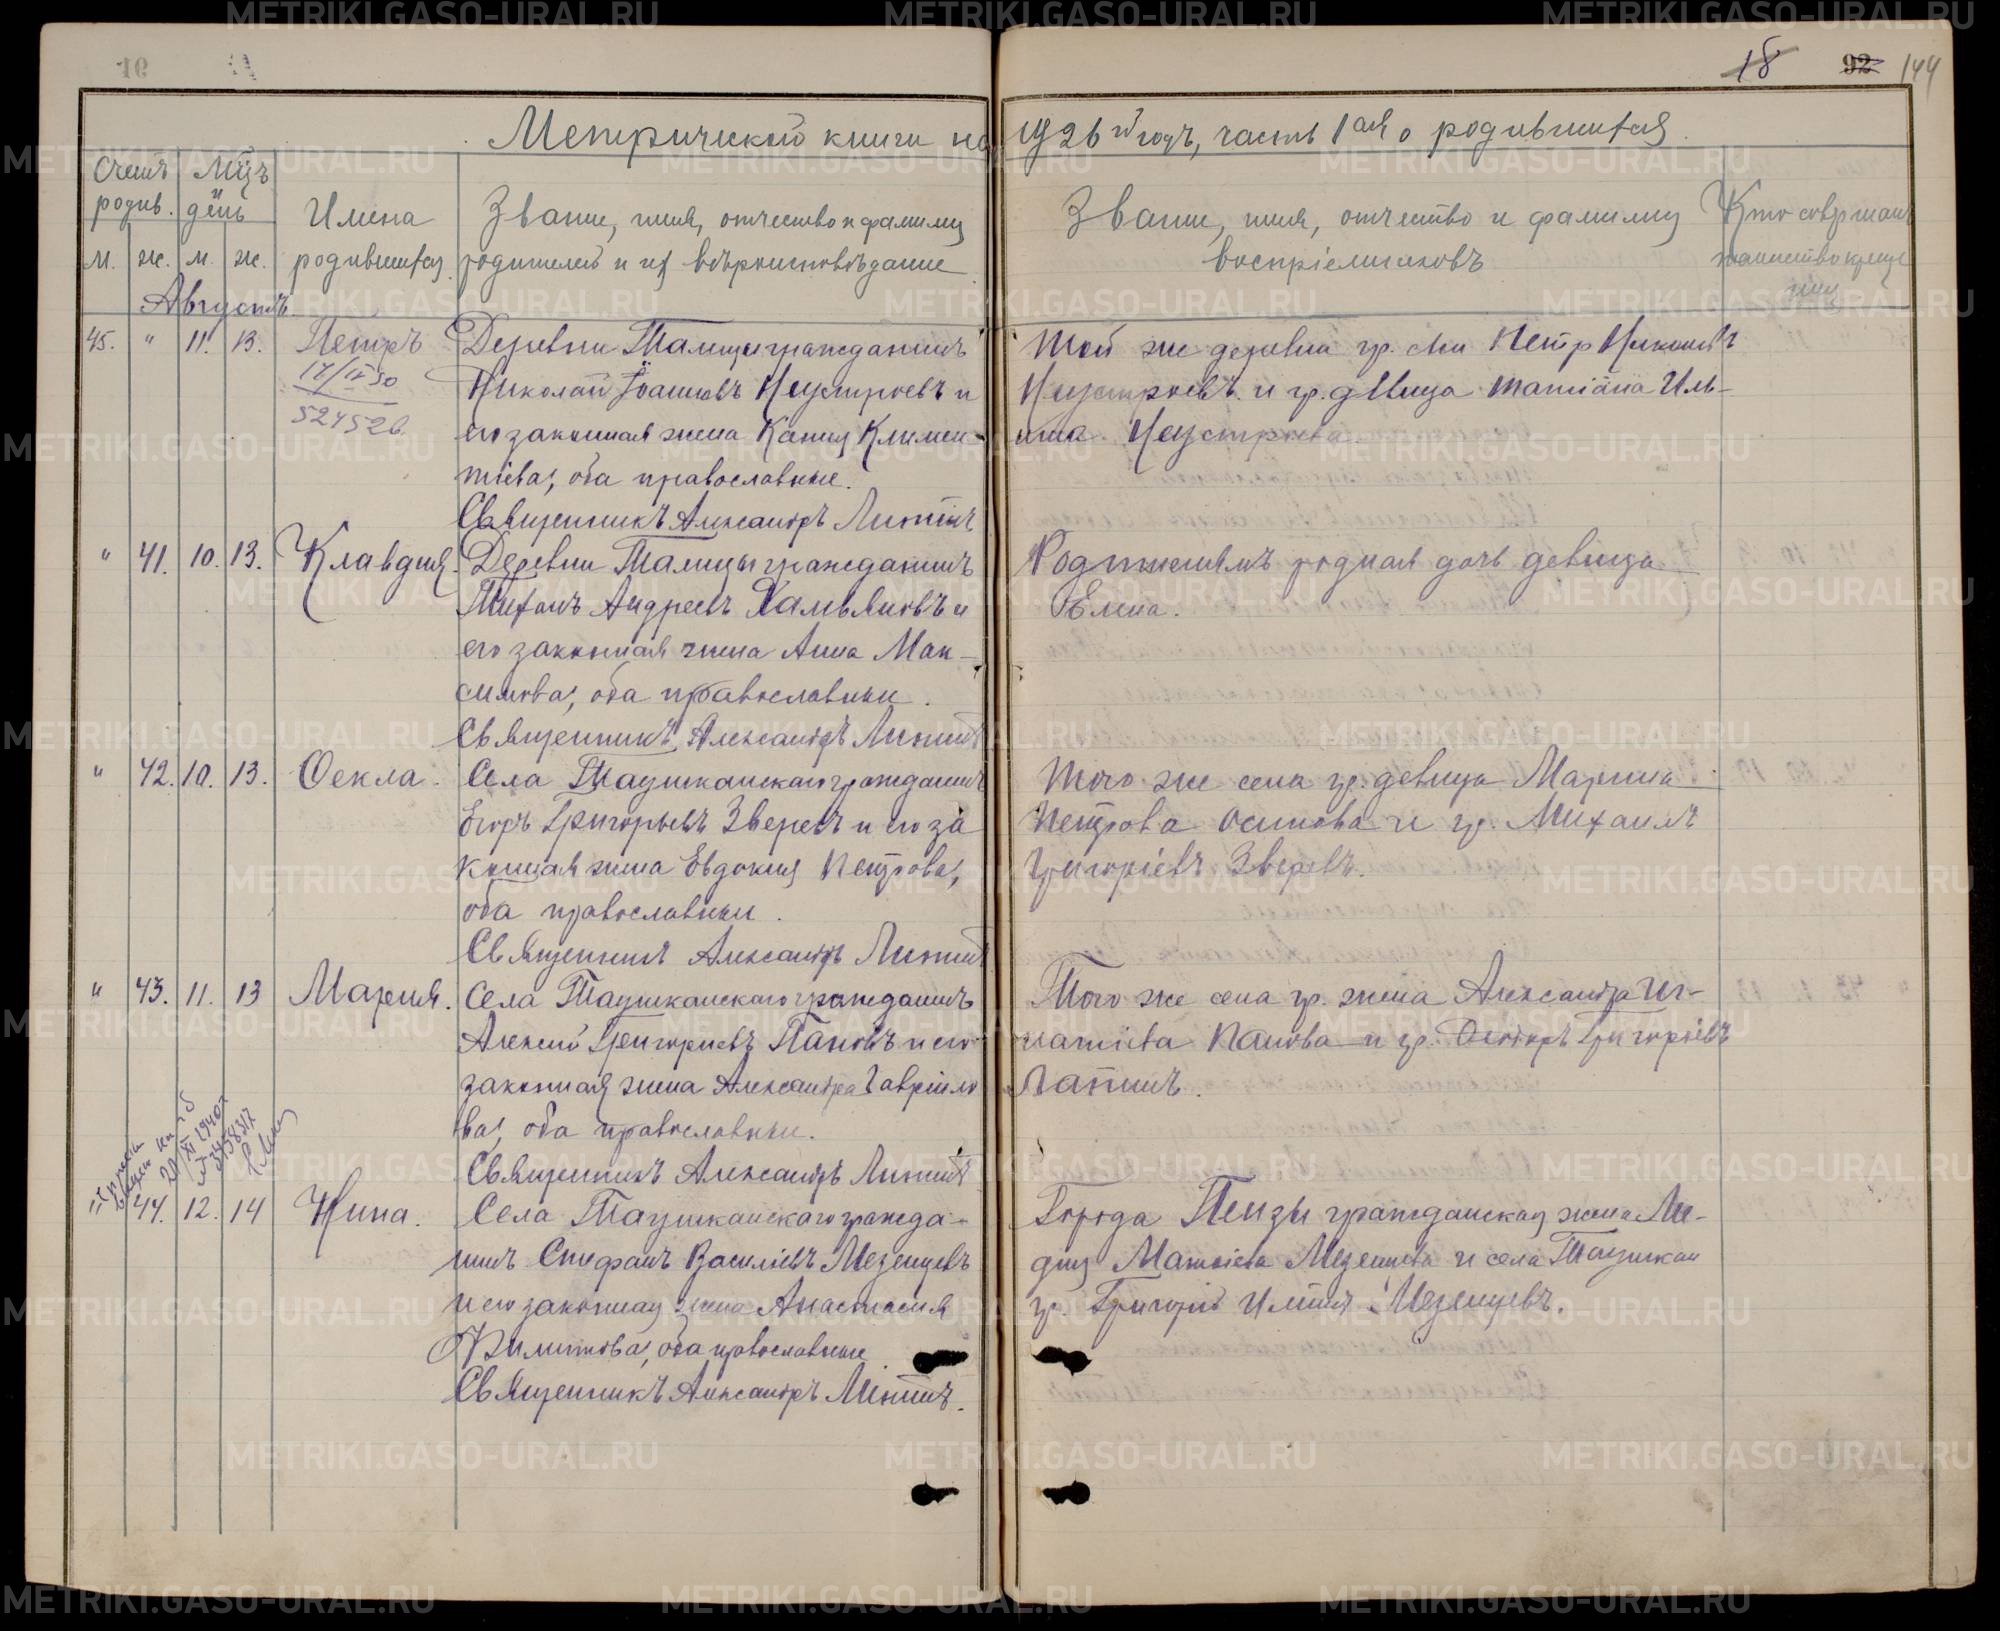 18 92 144
Метрической книги на 1926й годъ, часть 1ая о родившихся.
Счетъ родив. Мцъ и день Имена родившихся Званіе, имя, отчество и фамилія родителей и ихъ вѣроисповѣданіе
м. ж. м. ж.
Званіе, имя, отчество и фамилія воспріемниковъ
Кто совершалъ таинство крещенія
Августъ
45. " 11. 13. Петръ
17/II 30
524526
Деревни Талицы гражданинъ
Николай Іоанновъ Неустроевъ и
его законная жена Ксенія Климен-
тіева, оба православные.
Священникъ Александръ Лютинъ
Той же деревни гр. Петр
Неустроевъ и гр. дѣвица Татіана Иль-
ина Неустроева
" 41. 10. 13. Клавдия.
Деревни Талицы гражданинъ
Тихонъ Андреевъ и
его законная жена Анна Мак-
симова, оба православныи.
Священникъ Александръ
Родителямъ родная дочь девица
Елена.
" 42. 10. 13. Ѳекла.
Села Таушканскаго гражданинъ
Егоръ Григорьевъ Зверевъ и его за
конная жена Евдокия Петрова,
оба православныи.
Священникъ Александръ
Того же села гр. девица Марина
Петрова Осипова и гр. Михаилъ
Григоріевъ Зверевъ.
" 43. 11. 13 Мария.
Села Таушканскаго гражданинъ
Алексей Григориевъ Пановъ и его
законная жена Александра Гаврило
ва, оба православныи.
Священникъ Александръ
Того же села гр. жена Александра Иг-
натіева Панова и гр. Ѳеодоръ Григоріевъ
Лапинъ.
44. 12. 14 Нина.
Села Таушканскаго гражда-
нинъ Стефанъ Василіевъ Мезенцевъ
и его законная жена Анастасия
Филиппова, оба православные
Священникъ Александръ Лютинъ.
Города Пензы гражданская жена Ли-
дия Матвіева Мезенцева и села Таушкан
гр. Григорій Мезенцевъ.
METRIKI.GASO-URAL.RU